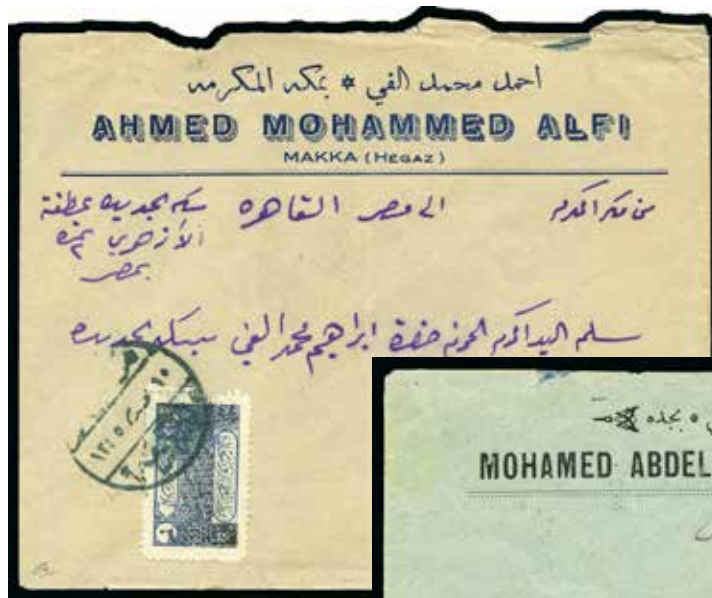 احمد محمد الفي * بمكه المكرمه
AHMED MOHAMMED ALFI
MAKKA (HEGAZ)
من مكه المكرمه الى مصر القاهره سكه الجديده عطفة
الأزهري نمره ٢
بمصر
سلم اليد اكرم حضرة ابراهيم محمد الفي بسكه الجديده
بجده
MOHAMED ABDEL